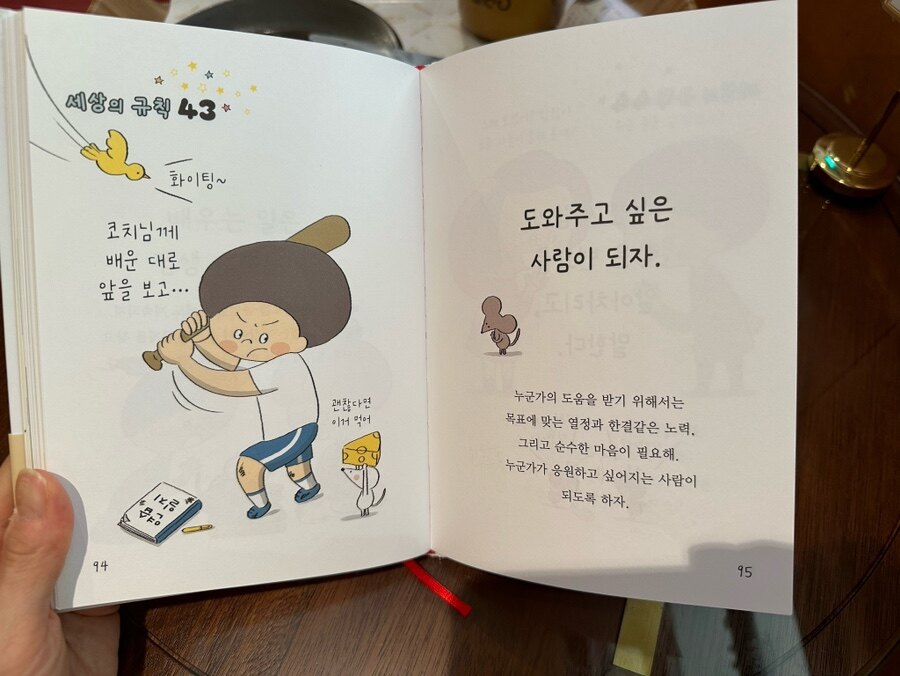 세상의 규칙 43
화이팅~
코치님께
배운 대로
앞을 보고...
괜찮다면
이거 먹어
연습
일지
94
도와주고 싶은
사람이 되자.
누군가의 도움을 받기 위해서는
목표에 맞는 열정과 한결같은 노력,
그리고 순수한 마음이 필요해.
누군가가 응원하고 싶어지는 사람이
되도록 하자.
95